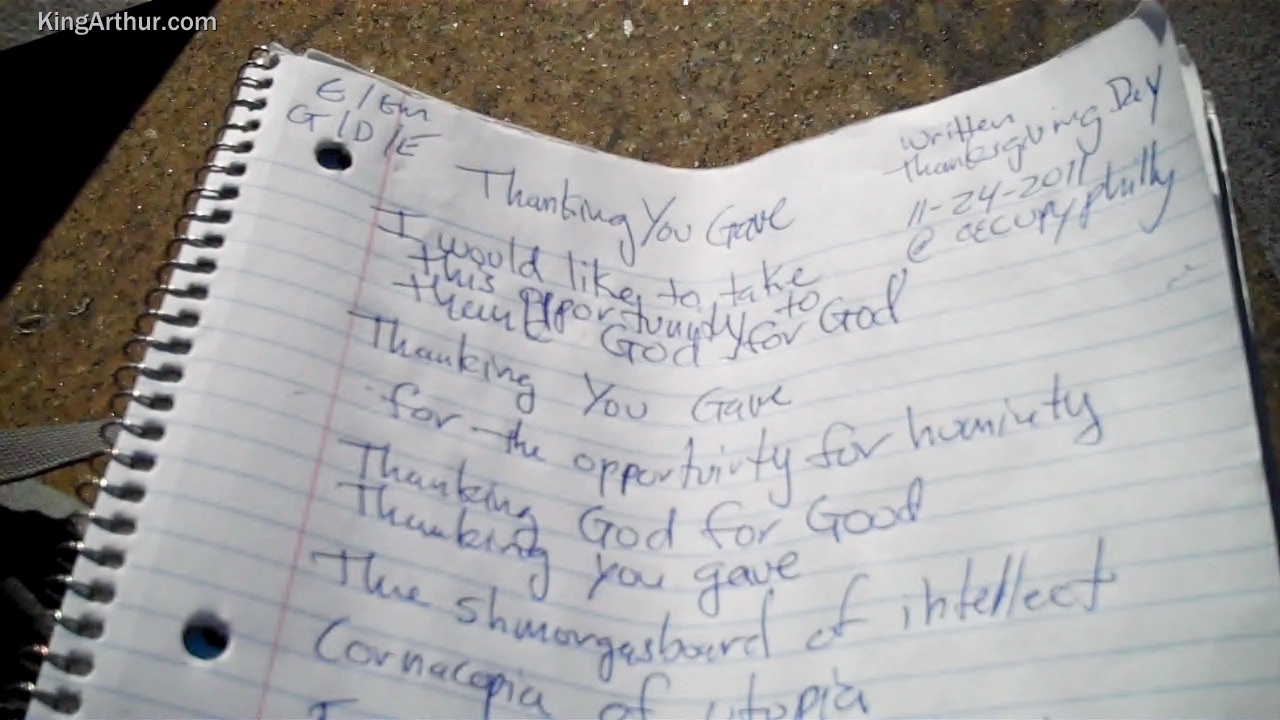 KingArthur.com
E/Em
G/D/E
written
thanksgiving Day
11-24-2011
@ occupyphilly
Thanking You Gave
I would like to take
this opportunity to
thank God for God
Thanking You Gave
for the opportuinty for huminety
Thanking God for Good
Thanking you gave
The shmorgasboard of intellect
Cornacopia of utopia
I